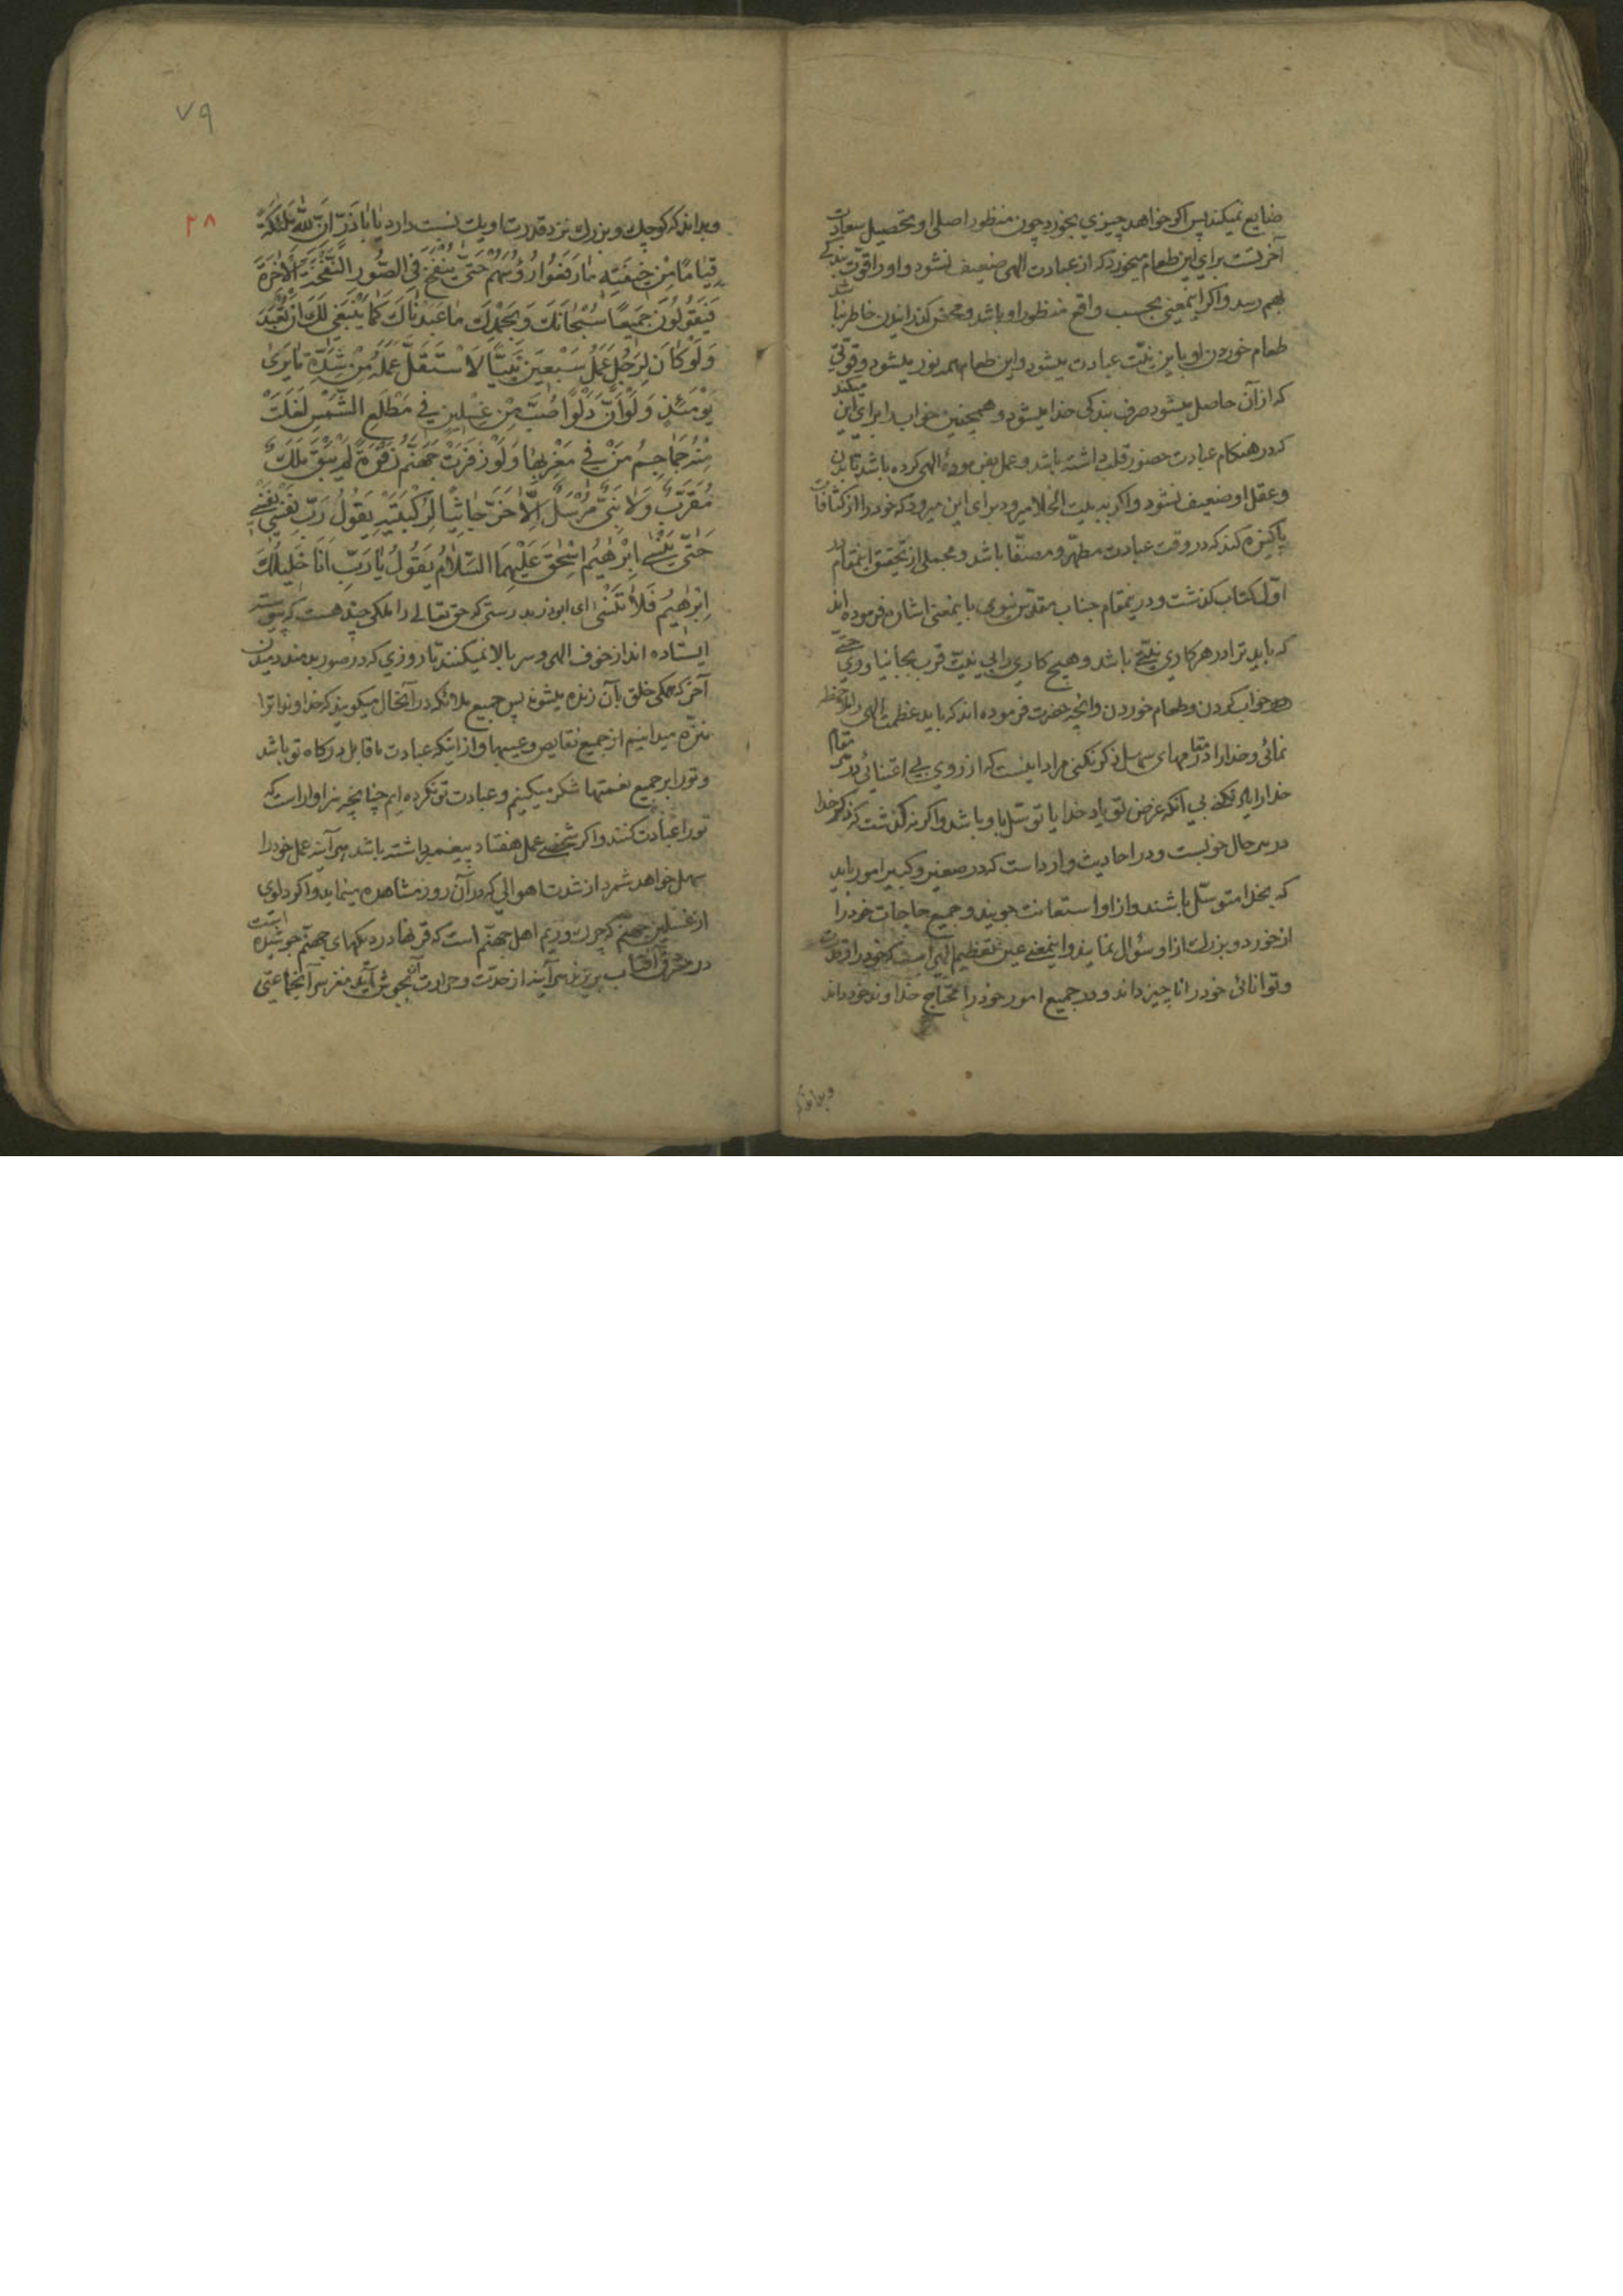 ضایع نمیکند پس اکر خواهد چیزی بخورد چون منظور اصلی او تحصیل سعادت
آخرتست برای این طعام میخورد که از عبادت الهی ضعیف نشود و او را قوّت بندگی
بهم رسد و اکر اینمعنی بحسب واقع منظور او باشد و محض گذرانیدن خاطر نباشد
طعام خوردن او باین نیّت عبادت میشود و این طعام همه نور میشود و قوّتی
که از آن حاصل میشود صرف بندکی خدا میشود و همچنین خواب را برای این میکند
که در هنکام عبادت حضور قلب داشته باشد و عمل بفرمودهٔ الهی کرده باشد تا بدن
و عقل او ضعیف نشود و اکر به بیت الخلا میرود برای این میرود که خود را از کثافات
پاکیزه کند که در وقت عبادت مطهّر و مصفّا باشد و مجملی از تحقیق اینمقام در
اوّل کتاب کذشت و در ینمقام جناب مقدّس نبوی باینمعنی اشاره فرموده اند
که باید ترا در هر کاری نیّتی باشد و هیچ کاری را بی نیّت قرب بجا نیاوری حتّی
خواب کردن و طعام خوردن و آنچه حضرت فرموده اند که باید عظمت الهی را ملاحظه
نمائی و خدا را در مقامهای سهل ذکر نکنی مراد اینست که از روی بی اعتنائی در هر مقام
خدا را یاد نکنی بی آنکه غرض تو یاد خدا یا توسّل باو باشد و اکر نه کذشت که ذکر خدا
در هر حال خوبست و در احادیث وارد است که در صغیر و کبیر امور باید
که بخدا متوسّل باشند و از او استعانت جویند و جمیع حاجات خود را
از خورد و بزرك از او سؤال نمایند و اینمعنی عین تعظیم الهی است که خود را و قدرت
و توانائی خود را ناچیز داند و در جمیع امور خود را محتاج خداوند خود داند
و بداند که
۷۹
۳۸
و بداند که کوچك و بزرك نزد قدرت او یك نسبت دارد یٰا بٰا ذَرّ اِنَّ لِلّٰهِ مَلٰئِکَةً
قِیٰامًا مِنْ خِیفَتِهِ مٰا رَفَعُوا رُؤُسَهُمْ حَتّٰی یُنْفَخَ فِی الصُّورِ النَّفْخَةَ الْاٰخِرَةَ
فَیَقُولُونَ جَمِیعًا سُبْحٰانَكَ وَ بِحَمْدِكَ مٰا عَبَدْنٰاكَ کَمٰا یَنْبَغِی لَكَ اَنْ تُعْبَدَ
وَ لَوْ کٰانَ لِرَجُلٍ عَمَلُ سَبْعِینَ نَبِیًّا لَاسْتَقَلَّ عَمَلَهُ مِنْ شِدَّةِ مٰا یَرٰی
یَوْمَئِذٍ وَ لَوْ اَنَّ دَلْوًا صُبَّ مِنْ غِسْلِینٍ فِی مَطْلَعِ الشَّمْسِ لَغَلَتْ
مِنْهُ جَمٰاجِمُ مَنْ فِی مَغْرِبِهٰا وَ لَوْ زَفَرَتْ جَهَنَّمُ زَفْرَةً لَمْ یَبْقَ مَلَكٌ
مُقَرَّبٌ وَ لٰا نَبِیٌّ مُرْسَلٌ اِلّٰا خَرَّ جٰاثِیًا لِرُکْبَتَیْهِ یَقُولُ رَبِّ نَفْسِی نَفْسِی
حَتّٰی یَنْسٰی اِبْرٰهِیمُ اِسْحٰقَ عَلَیْهِمَا السَّلٰامُ یَقُولُ یٰا رَبِّ اَنَا خَلِیلُكَ
اِبْرٰهِیمُ فَلٰا تَنْسَنِی ای ابو ذر بدرستی که حق تعالی را ملکی چند هست که پیوسته
ایستاده اند از خوف الهی و سر بالا نمیکنند تا روزی که در صور بدمند دمیدن
آخر که همکی خلق بآن زنده میشوند پس جمیع ملائکه در آنحال میکویند که خداوندا ترا
منزّه میدانیم از جمیع نقایص و عیبها و از اینکه عبادت ما قابل درکاه تو باشد
و تو را بر جمیع نعمتها شکر میکنیم و عبادت تو نکرده ایم چنانچه سزاوار است که
تو را عبادت کنند و اکر شخصی عمل هفتاد پیغمبر داشته باشد هر آینه عمل خود را
سهل خواهد شمرد از شدت اهوالی که در آن روز مشاهده مینماید و اکر دلوی
از غسلین جهنّم که چرك و ریم اهل جهنّم است که قرنها در دیکهای جهنّم جوشیده است
در مشرق آفتاب بریزند هر آینه از حدّت و حرارت آن بجوش آید مغز سر آنجماعتی